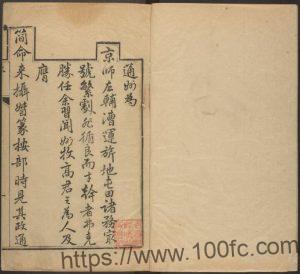 通州為
京師左輔漕運旂地屯田諸務最
號繁劇非循良而才幹者弗克
勝任余習聞州牧高君之為人及
膺
簡命來攝督篆按部時見其政通
www.100fc.com